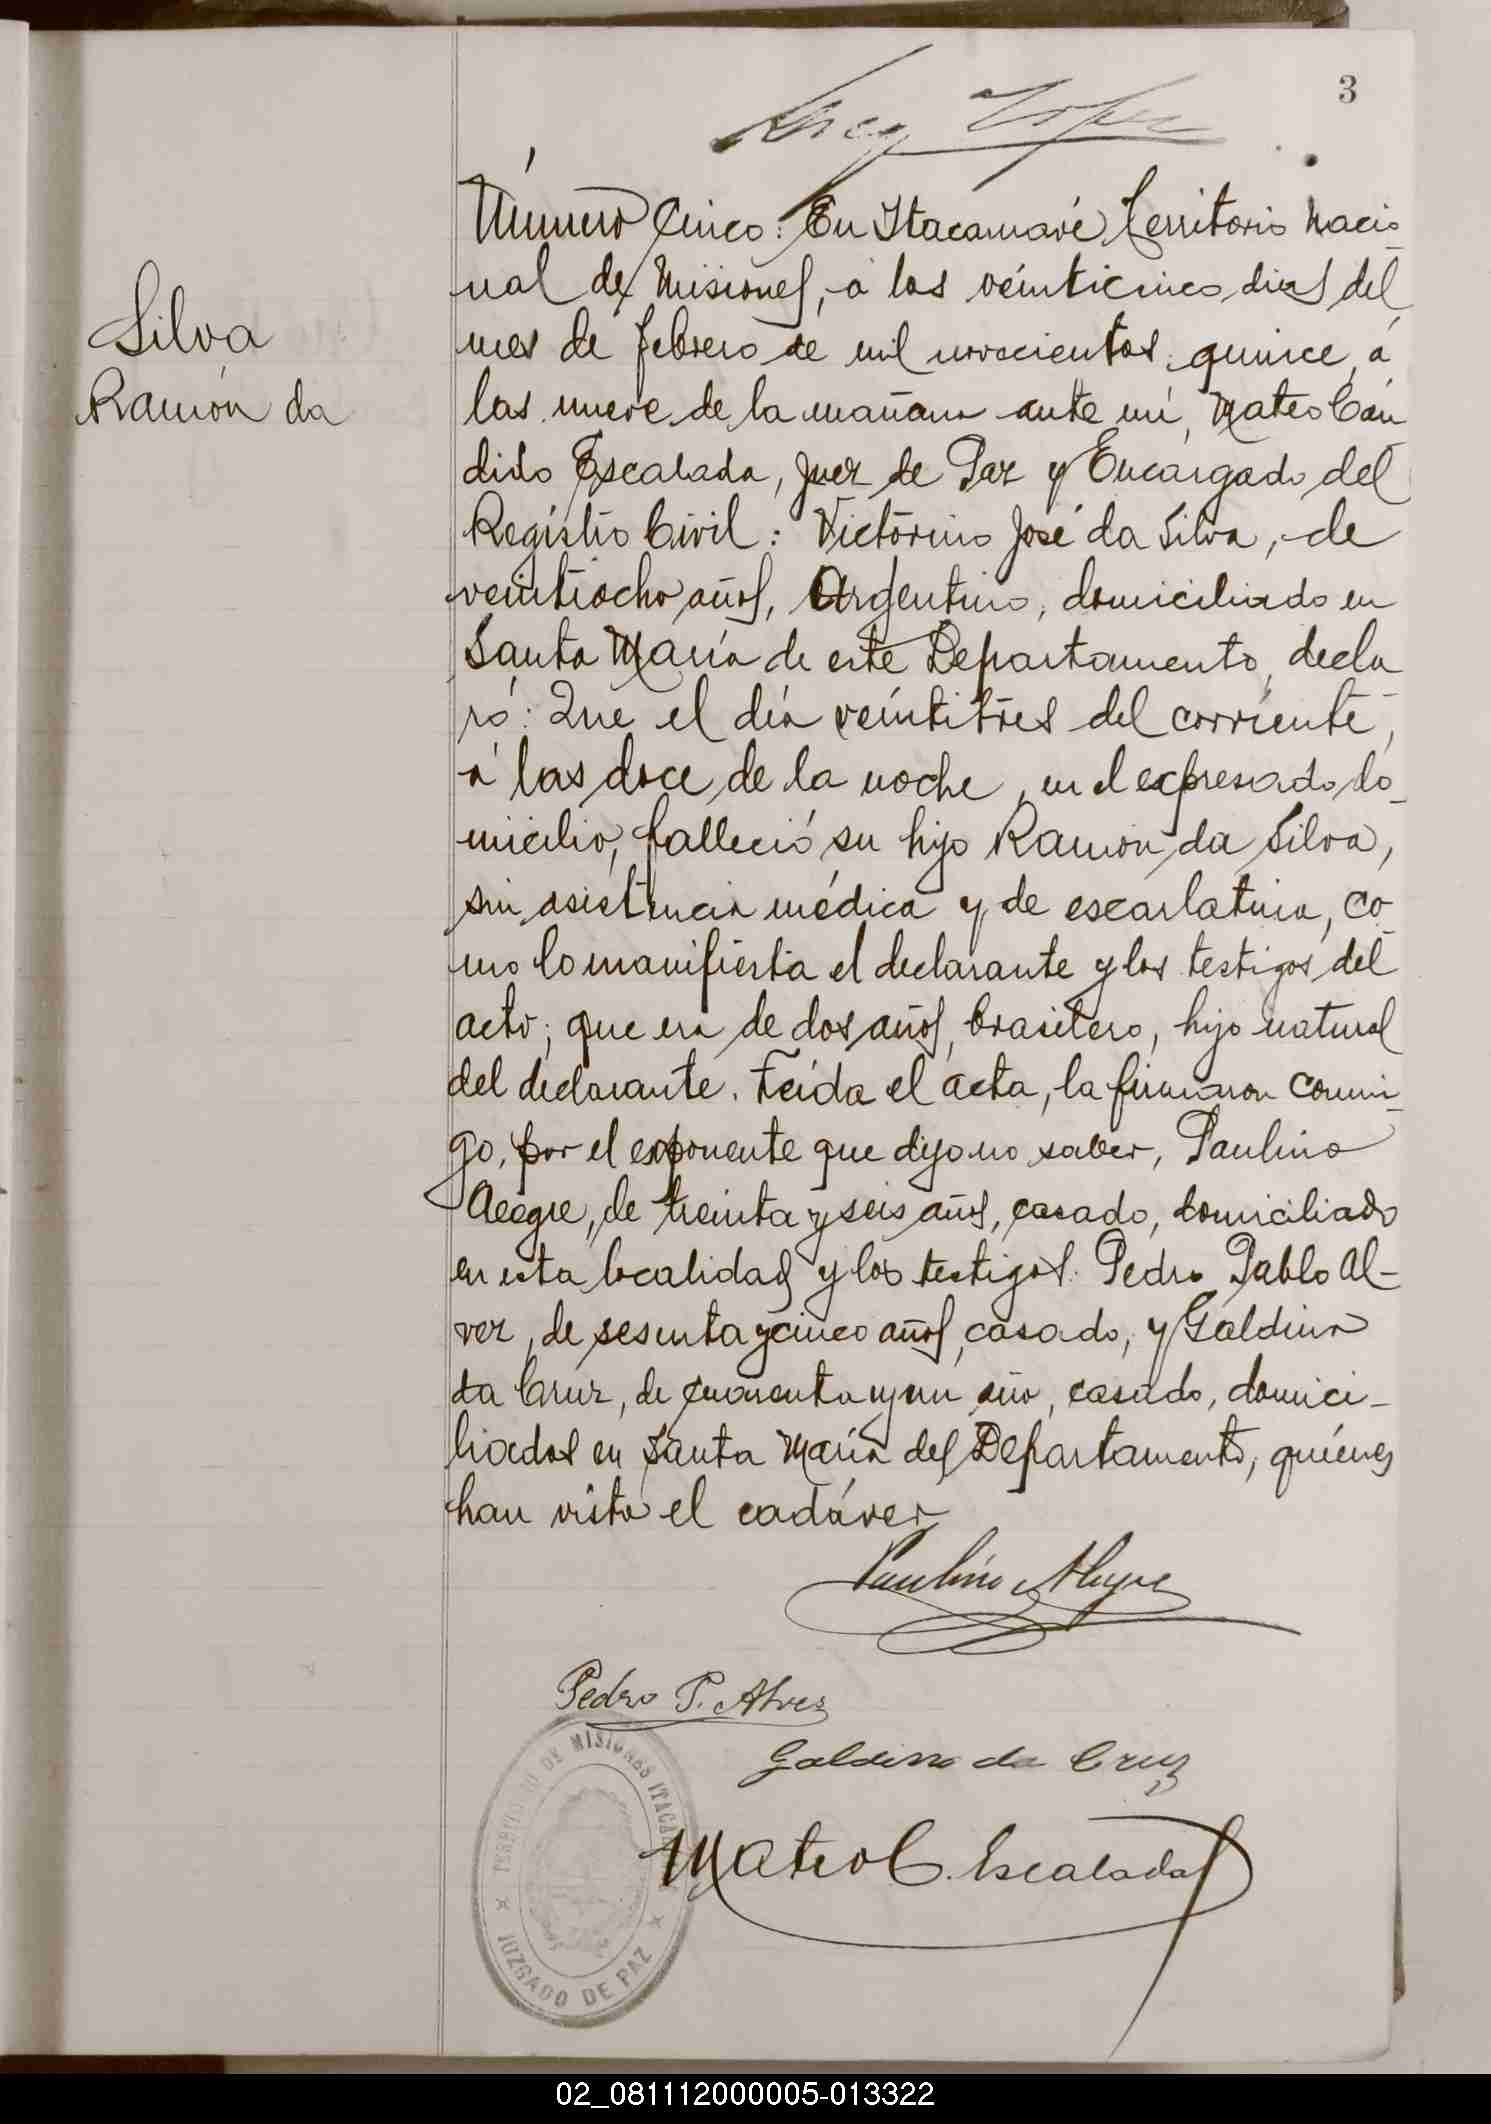 3
Lopez
Silva
Ramón da
Número Cinco: En Itacaruaré Territorio Nacio-
nal de Misiones, á los veinticinco dias del
mes de febrero de mil novecientos quince, á
las nueve de la mañana ante mí, Mateo Cán
dido Escalada, Juez de Paz y Encargado del
Registro Civil: Victorino José da Silva, de
veintiocho años, Argentino, domiciliado en
Santa María de este Departamento, decla
ró: Que el día veintitres del corriente,
á las doce de la noche, en el expresado do-
micilio, falleció su hijo Ramón da Silva,
sin asistencia médica y de escarlatina, co-
mo lo manifiesta el declarante y los testigos del
acto; que era de dos años, brasilero, hijo natural
del declarante. Leida el acta, la firmaron conmi-
go, por el exponente que dijo no saber, Paulino
Alegre, de treinta y seis años, casado, domiciliado
en esta localidad y los testigos: Pedro Pablo Al-
vez, de sesenta y cinco años, casado, y Galdino
da Cruz, de cuarenta y un año, casado, domici-
liados en Santa María del Departamento, quiénes
han visto el cadáver
Paulino Alegre
Pedro P. Alvez
Galdino da Cruz
Mateo C. Escalada
TERRITORIO DE MISIONES ITACA
JUZGADO DE PAZ
02_081112000005-013322